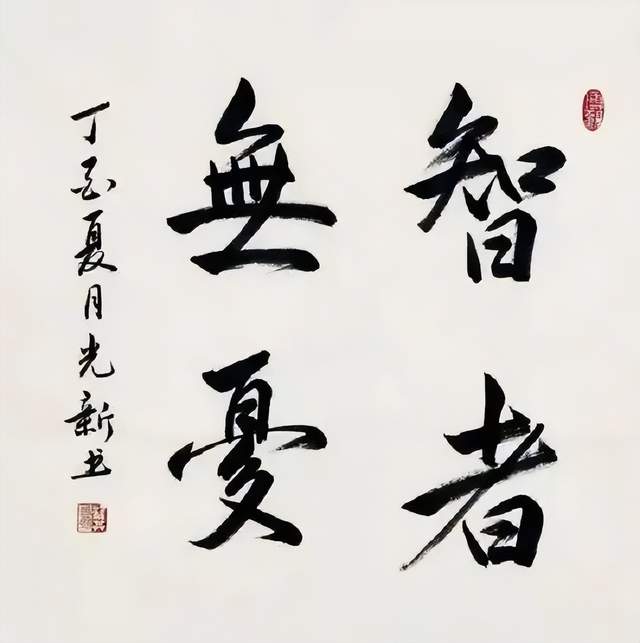 智者
無憂
丁酉夏月光新书